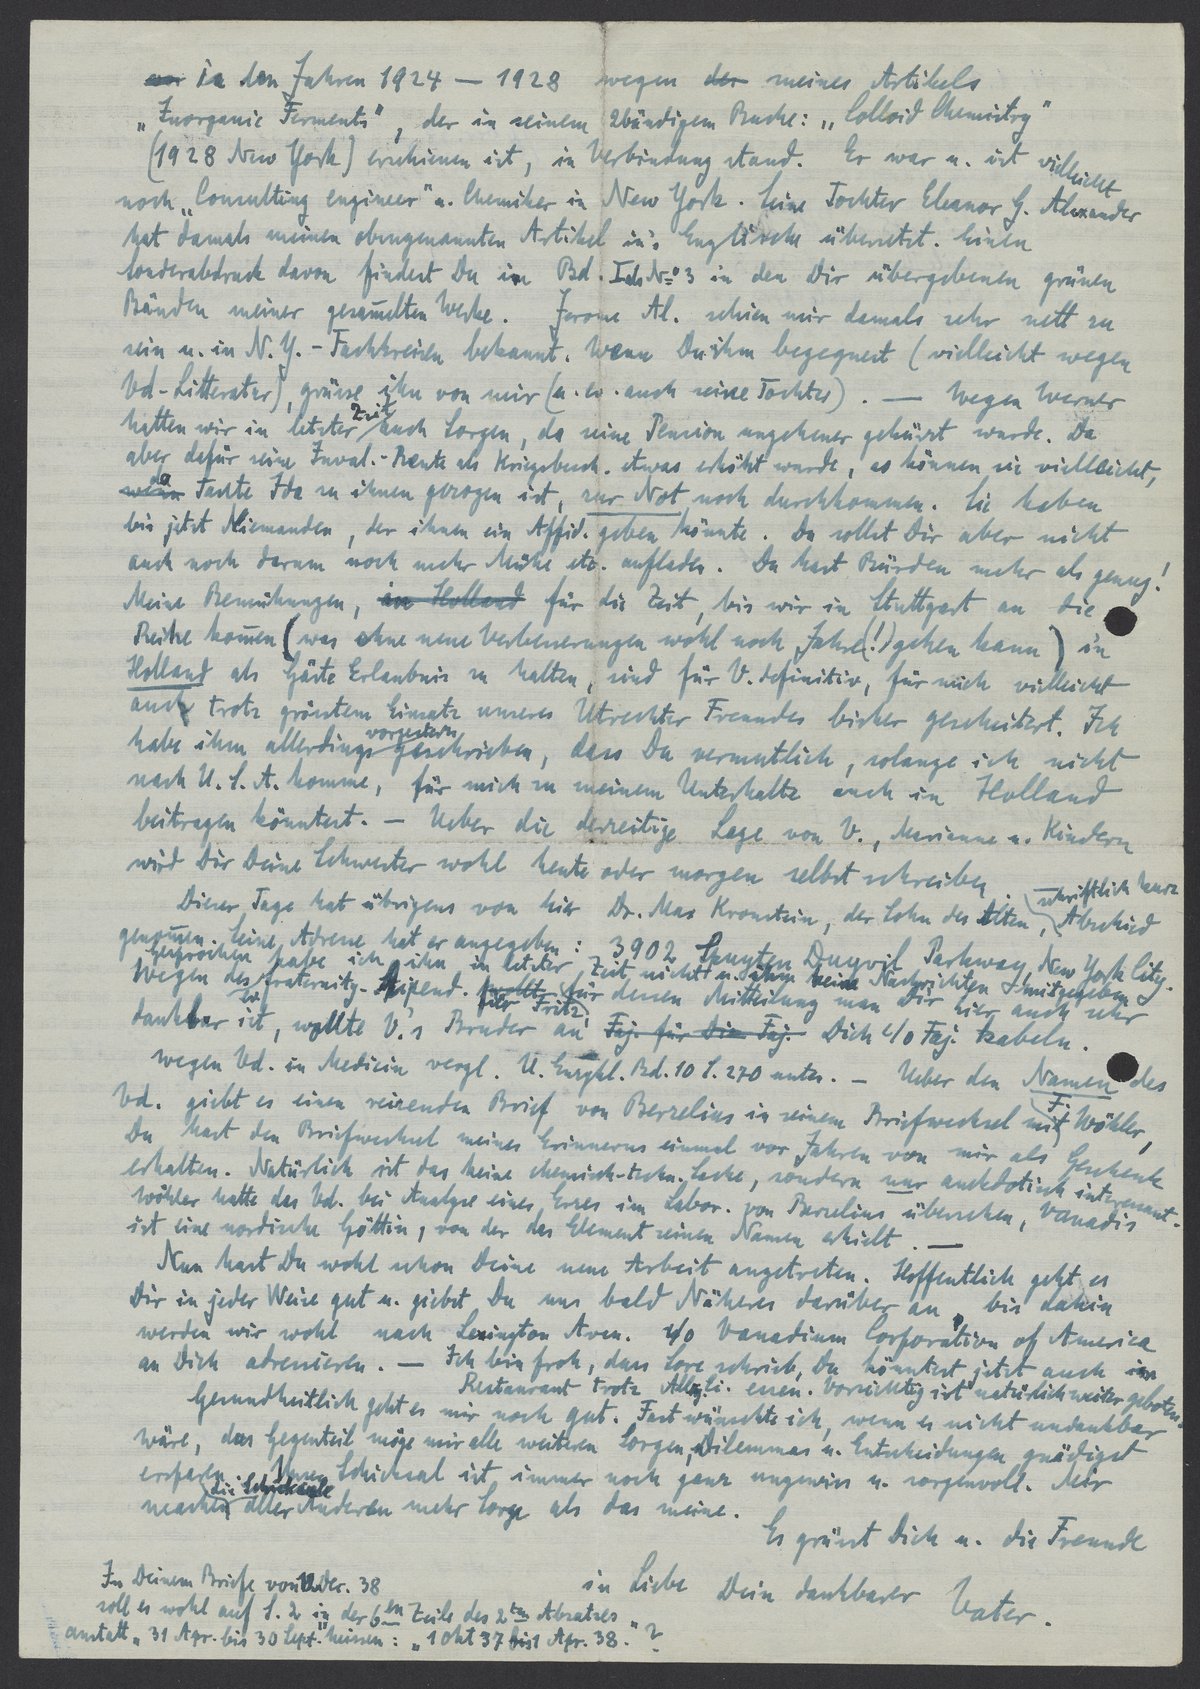 vor in den Jahren 1924 — 1928 wegen der meines Artikels
„Inorganic Ferments", der in seinem 2bändigem Buche: „Colloid Chemistry"
(1928 New York) erschienen ist, in Verbindung stand. Er war u. ist vielleicht
noch „Consulting engineer" u. Chemiker in New York. Seine Tochter Eleanor G. Alexander
hat damals meinen obengenannten Artikel in's Englische übersetzt. Einen
Sonderabdruck davon findest Du im Bd. I ds No 3 in den Dir übergebenen grünen
Bänden meiner gesam̅elten Werke. Jerome Al. schien mir damals sehr nett zu
sein u. in N.Y.-Fachkreisen bekannt. Wenn Du ihm begegnest (vielleicht wegen
Vd-Litteratur), grüsse ihn von mir (u. ev. auch seine Tochter). — Wegen Werner
hatten wir in letzter Zeit auch Sorgen, da seine Pension ungeheuer gekürzt wurde. Da
aber dafür seine Inval.-Rente als Kriegsbesch. etwas erhöht wurde, so können sie vielleicht,
wenn da Tante Ida zu ihnen gezogen ist, zur Not noch durchkommen. Sie haben
bis jetzt Niemanden, der ihnen ein Affid. geben könnte. Du sollst Dir aber nicht
auch noch darum noch mehr Mühe etc. aufladen. Du hast Bürden mehr als genug!
Meine Bemühungen, in Holland für die Zeit, bis wir in Stuttgart an die
Reihe kom̅en (was ohne neue Verbesserungen wohl noch Jahre(!) gehen kann) in
Holland als Gäste Erlaubnis zu halten, sind für V. definitiv, für mich vielleicht
auch trotz grösstem Einsatz unseres Utrechter Freundes bisher gescheitert. Ich
habe ihm allerdings vorgestern geschrieben, dass Du vermutlich, solange ich nicht
nach U.S.A. komme, für mich zu meinem Unterhalte auch in Holland
beitragen könntest. — Ueber die derzeitige Lage von V., Marianne u. Kindern
wird Dir Deine Schwester wohl heute oder morgen selbst schreiben.
Dieser Tage hat übrigens von hier Dr. Max Kronstein, der Sohn des Alten, schriftlich kurz Abschied
genom̅en. Seine Adresse hat er angegeben: 3902 Spuyten Duyvil Parkway, New York City.
Gesprochen habe ich ihn in letzter Zeit nicht u. ihm keine Nachrichten mitgegeben
Wegen des Fraternity-Stipend. für Fritz, für dessen Mitteilung man Dir hier auch sehr
dankbar ist, wollte V.'s Bruder an Faj. für Die Faj. Dich c/o Faj. kabeln.
Wegen Vd. in Medicin vergl. U. Enzykl. Bd. 10 S. 270 unten. — Ueber den Namen des
Vd. giebt es einen reizenden Brief von Berzelius in seinem Briefwechsel mit F. Wöhler,
Du hast den Briefwechsel meines Erinnerns einmal vor Jahren von mir als Geschenk
erhalten. Natürlich ist das keine chemisch-techn. Sache, sondern nur anekdotisch interessant.
Wöhler hatte das Vd. bei Analyse eines Erzes im Labor. von Berzelius übersehen, Vanadis
ist eine nordische Göttin, von der das Element seinen Namen erhielt. —
Nun hast Du wohl schon Deine neue Arbeit angetreten. Hoffentlich geht es
Dir in jeder Weise gut u. giebst Du uns bald Näheres darüber an, bis dahin
werden wir wohl nach Lexington Aven. c/o Vanadium Corporation of America
an Dich adressieren. — Ich bin froh, dass Lore schrieb, Du könntest jetzt auch im
Restaurant trotz essen. Vorsichtig ist natürlich weiter geboten.
Gesundheitlich geht es mir noch gut. Fast wünschte ich, wenn es nicht undankbar
wäre, das Gegenteil möge mir alle weiteren Sorgen, Dilemmas u. Entscheidungen gnädigst
ersparen. Unser Schicksal ist immer noch ganz ungewiss u. sorgenvoll. Mir
machen die Schicksale aller Anderen mehr Sorge als das meine.
Es grüsst Dich u. die Freunde
in Liebe Dein dankbarer Vater.
In Deinem Briefe vom 12. Dez. 38
soll es wohl auf S. 2 in der 6ten Zeile des 2ten Absatzes
anstatt „31 Apr. bis 30 Sept." heissen: „1 Okt 37 bis 1 Apr. 38."?